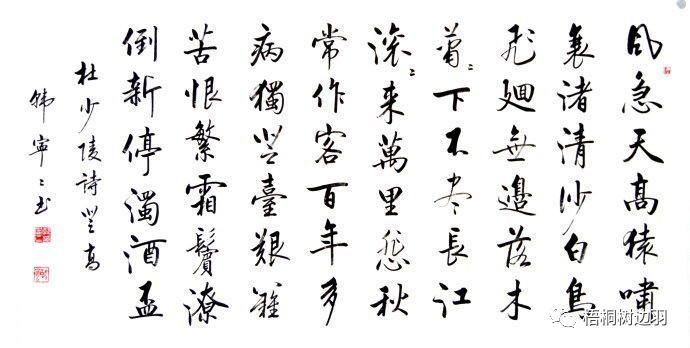 風急天高猿嘯
哀渚清沙白鳥
飛廻無邊落木
蕭〻下不尽長江
滚〻来萬里悲秋
常作客百年多
病獨登臺艱難
苦恨繁霜鬢潦
倒新停濁酒盃
杜少陵詩登高
韩寧〻书
梧桐树边羽